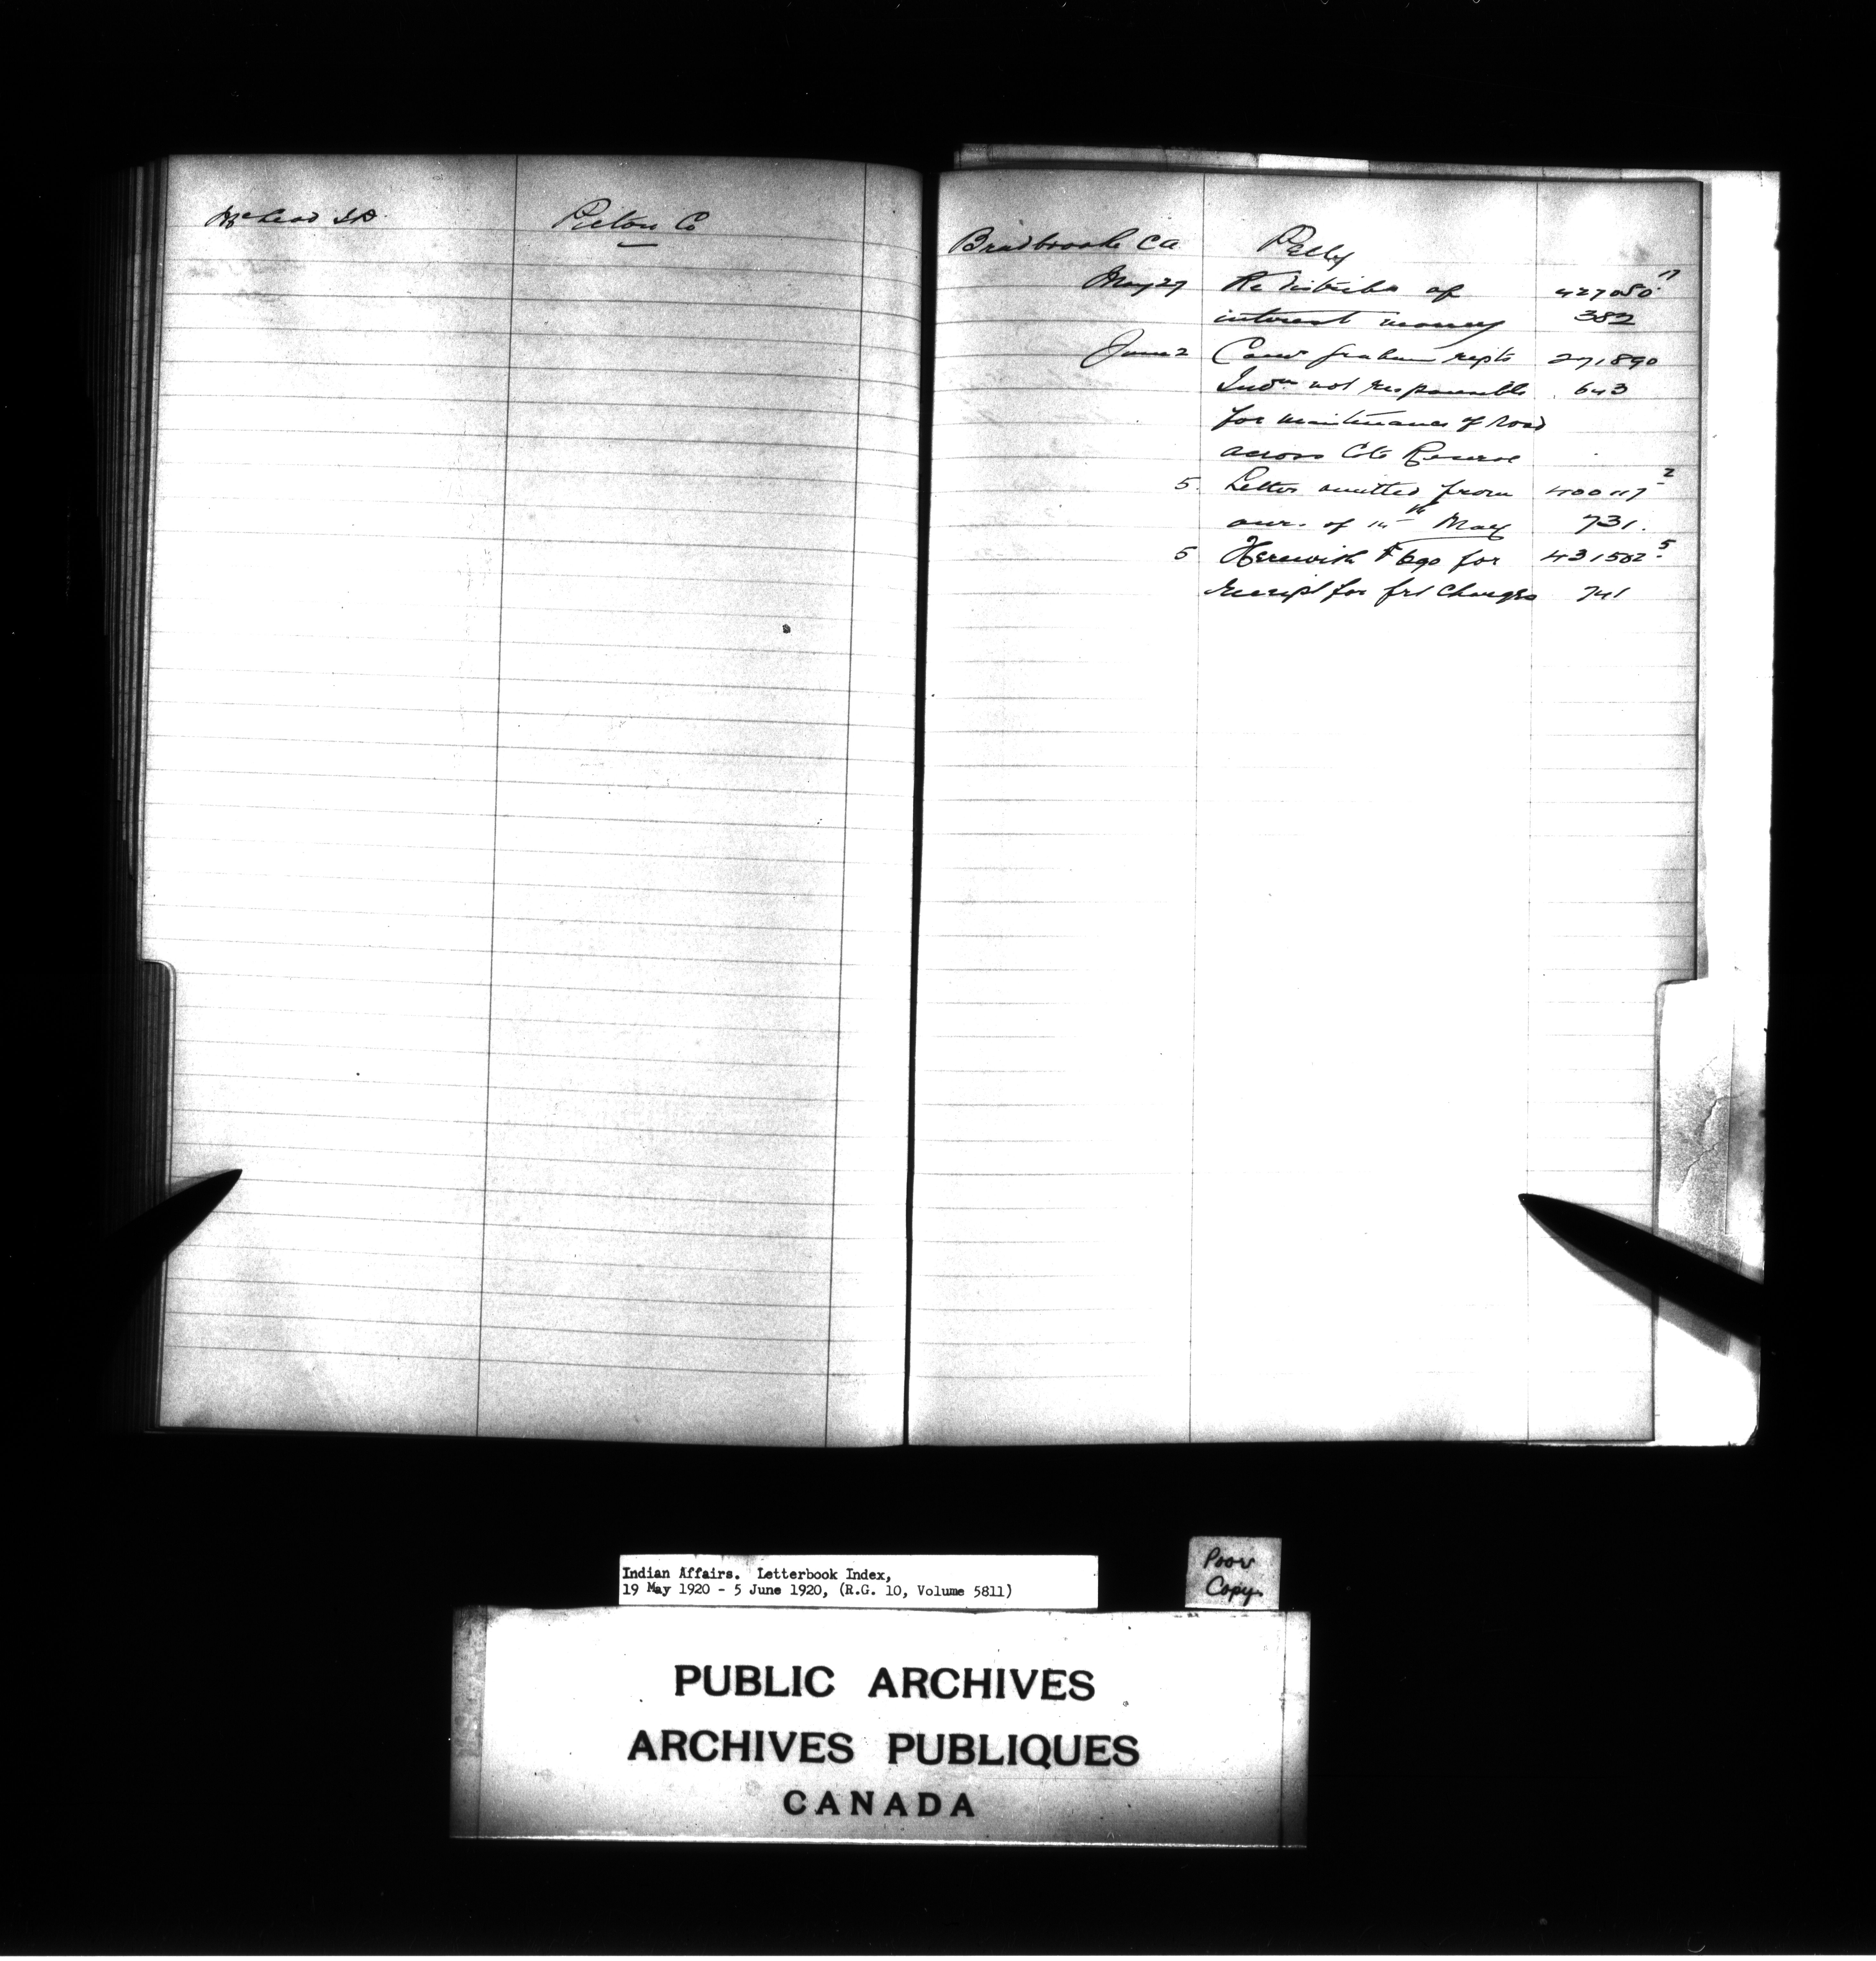 McLeod J.D.
Pictou Co
Bradbrooke CA
Pelly
May 27 Re distribn of 427050 17
interest money 382
June 2 Comr Graham repts 271,890
Indns not responsible 643
for maintenance of road
across Cote Reserve
5. Letter omitted from 400117 2
our. of 14th May 731.
5 Herewith F 690 for 431502 5
receipt for frt charges 741
Indian Affairs. Letterbook Index,
19 May 1920 - 5 June 1920, (R.G. 10, Volume 5811)
Poor
Copy.
PUBLIC ARCHIVES
ARCHIVES PUBLIQUES
CANADA